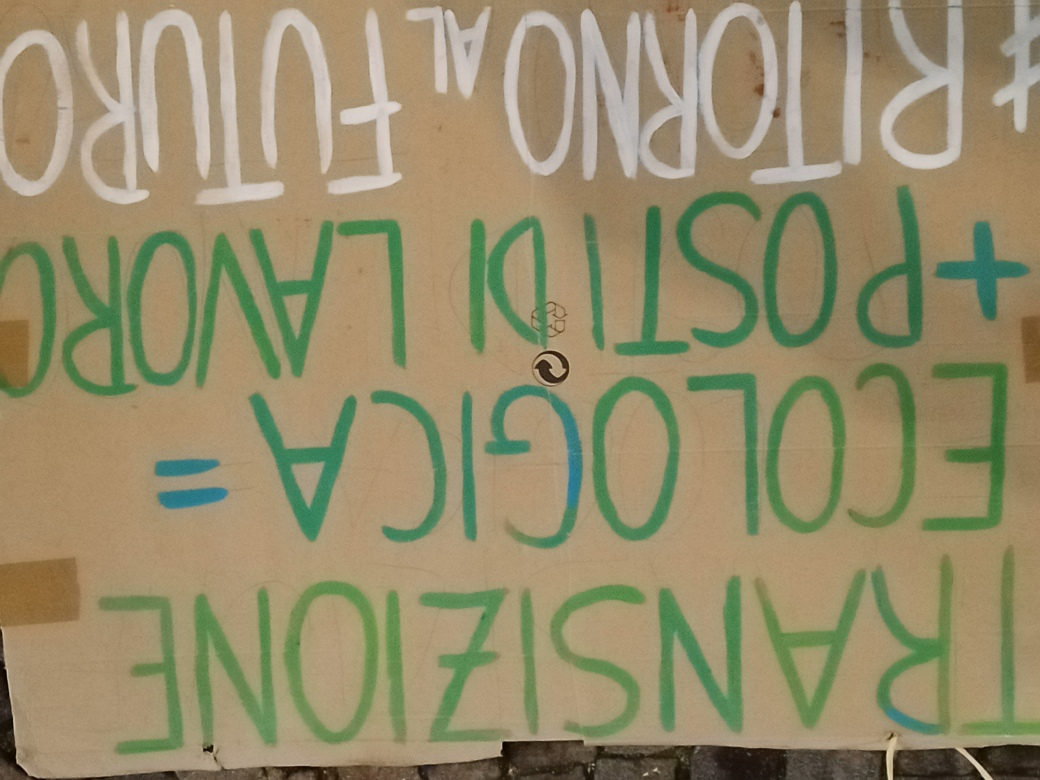 TRANSIZIONE
ECOLOGICA =
+ POSTI DI LAVORO
# RITORNO AL FUTURO